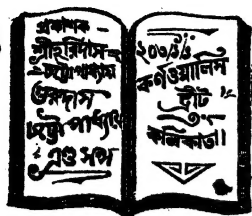 প্রকাশক
শ্রীহরিদাস
চট্টোপাধ্যায়
গুরুদাস
চট্টোপাধ্যায়
এণ্ড সন্স
২০৩/১/১
কর্ণওয়ালিস
ষ্ট্রীট
কলিকাতা।।